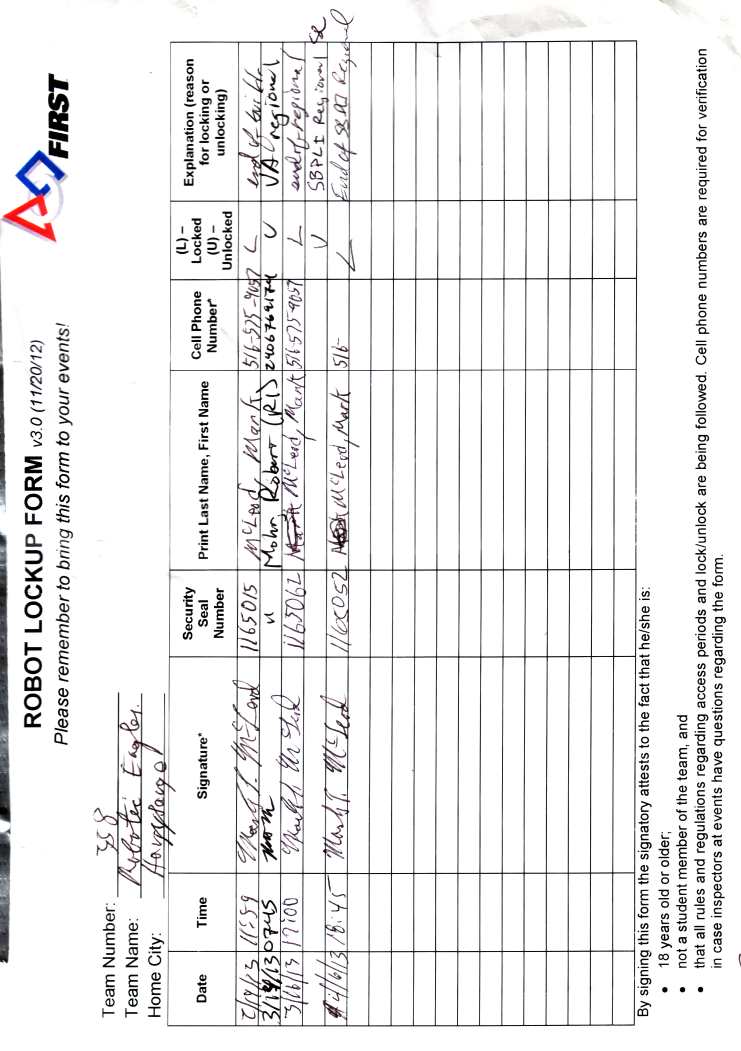 FIRST
ROBOT LOCKUP FORM v3.0 (11/20/12)
Please remember to bring this form to your events!
Team Number: 358
Team Name: Robotic Eagles
Home City: Hauppauge
Date Time Signature* Security Seal Number Print Last Name, First Name Cell Phone Number* (L) – Locked (U) – Unlocked Explanation (reason for locking or unlocking)
2/19/13 11:59 Mark T. McLeod 1165015 McLeod, Mark 516-575-9057 L end of build
3/14/13 0745 " Mohr, Robert (RI) 2406769174 U VA regional
3/16/13 17:00 Mark T. McLeod 1165062 McLeod, Mark 516 575 9057 L end of regional
U SBPLI Regional
4/6/13 18:45 Mark T. McLeod 1165052 McLeod, Mark 516- L End of SBPLI Regional
By signing this form the signatory attests to the fact that he/she is:
• 18 years old or older;
• not a student member of the team, and
• that all rules and regulations regarding access periods and lock/unlock are being followed. Cell phone numbers are required for verification
in case inspectors at events have questions regarding the form.